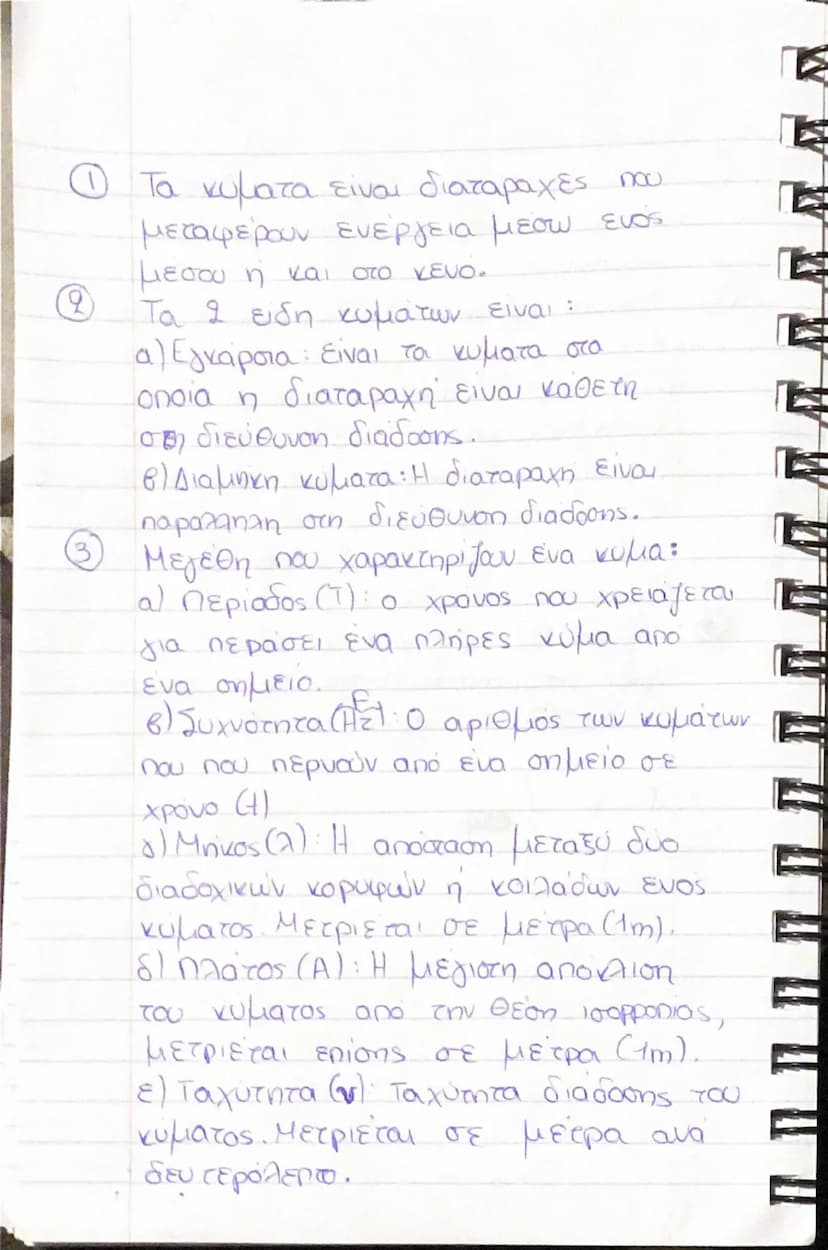 ① Τα κυματα είναι διαταραχες που
μεταφέρουν ενέργεια μέσω ενός
μεσου ή και στο κενό.
② Τα 2 ειδη κυμάτων ειναι:
α) Εγκάρσια: είναι τα κυματα στα
οποία η διαταραχή είναι κάθετη
στη διεύθυνση διάδοσης.
β) Διαμηκη κυματα: Η διαταραχη είναι
παραλληλη στη διευθυνση διαδοσης.
③ Μεγέθη που χαρακτηρίζουν ένα κυμα:
α) Περίοδος (Τ): ο χρονος που χρειάζεται
για περάσει ένα πλήρες κύμα από
ένα σημείο.
β) Συχνότητα (Hz): Ο αριθμός των κυμάτων
που που περνούν από ένα σημείο σε
χρόνο (t)
γ) Μήκος (λ): Η απόσταση μεταξύ δυο
διαδοχικών κορυφών ή κοιλάδων ενος
κύματος. Μετριέται σε μέτρα (1m).
δ) Πλάτος (Α): Η μέγιστη απόκλιση
του κυματος απο την θέση ισορροπίας,
μετριέται επίσης σε μέτρα (1m).
ε) Ταχύτητα (v): Ταχύτητα διάδοσης του
κυματος. Μετριέται σε μέτρα ανά
δευτερόλεπτο.